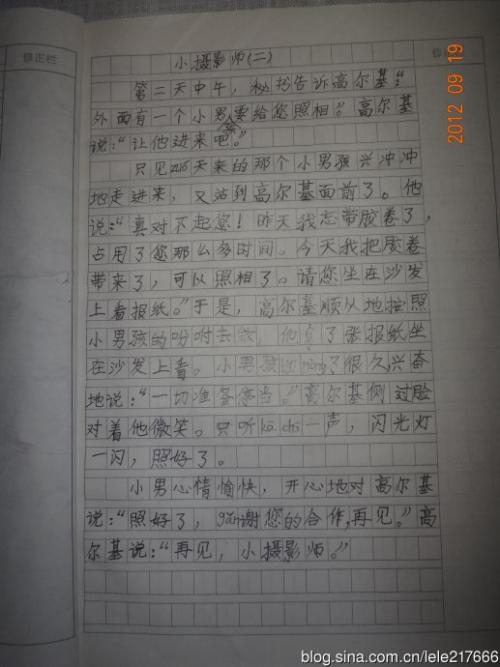 修正栏
小摄影师(二)
第二天中午，秘书告诉高尔基："
外面有一个小男要给您照相。"高尔基
说："让他进来吧。"
只见zuó天来的那个小男孩兴冲冲
地走进来，又站到高尔基面前了。他
说："真对不起您！昨天我忘带胶卷了，
占用了您那么多时间。今天我把胶卷
带来了，可以照相了。请您坐在沙发
上看报纸。"于是，高尔基顺从地按照
小男孩的吩咐去做，他拿了张报纸坐
在沙发上看。小男孩 了很久，兴奋
地说："一切准备停当。"高尔基侧过脸
对着他微笑。只听kā chā一声，闪光灯
一闪，照好了。
小男心情愉快，开心地对高尔基
说："照好了，gǎn谢您的合作，再见。"高
尔基说："再见，小摄影师。"
2012 09 19
blog.sina.com.cn/lele217666